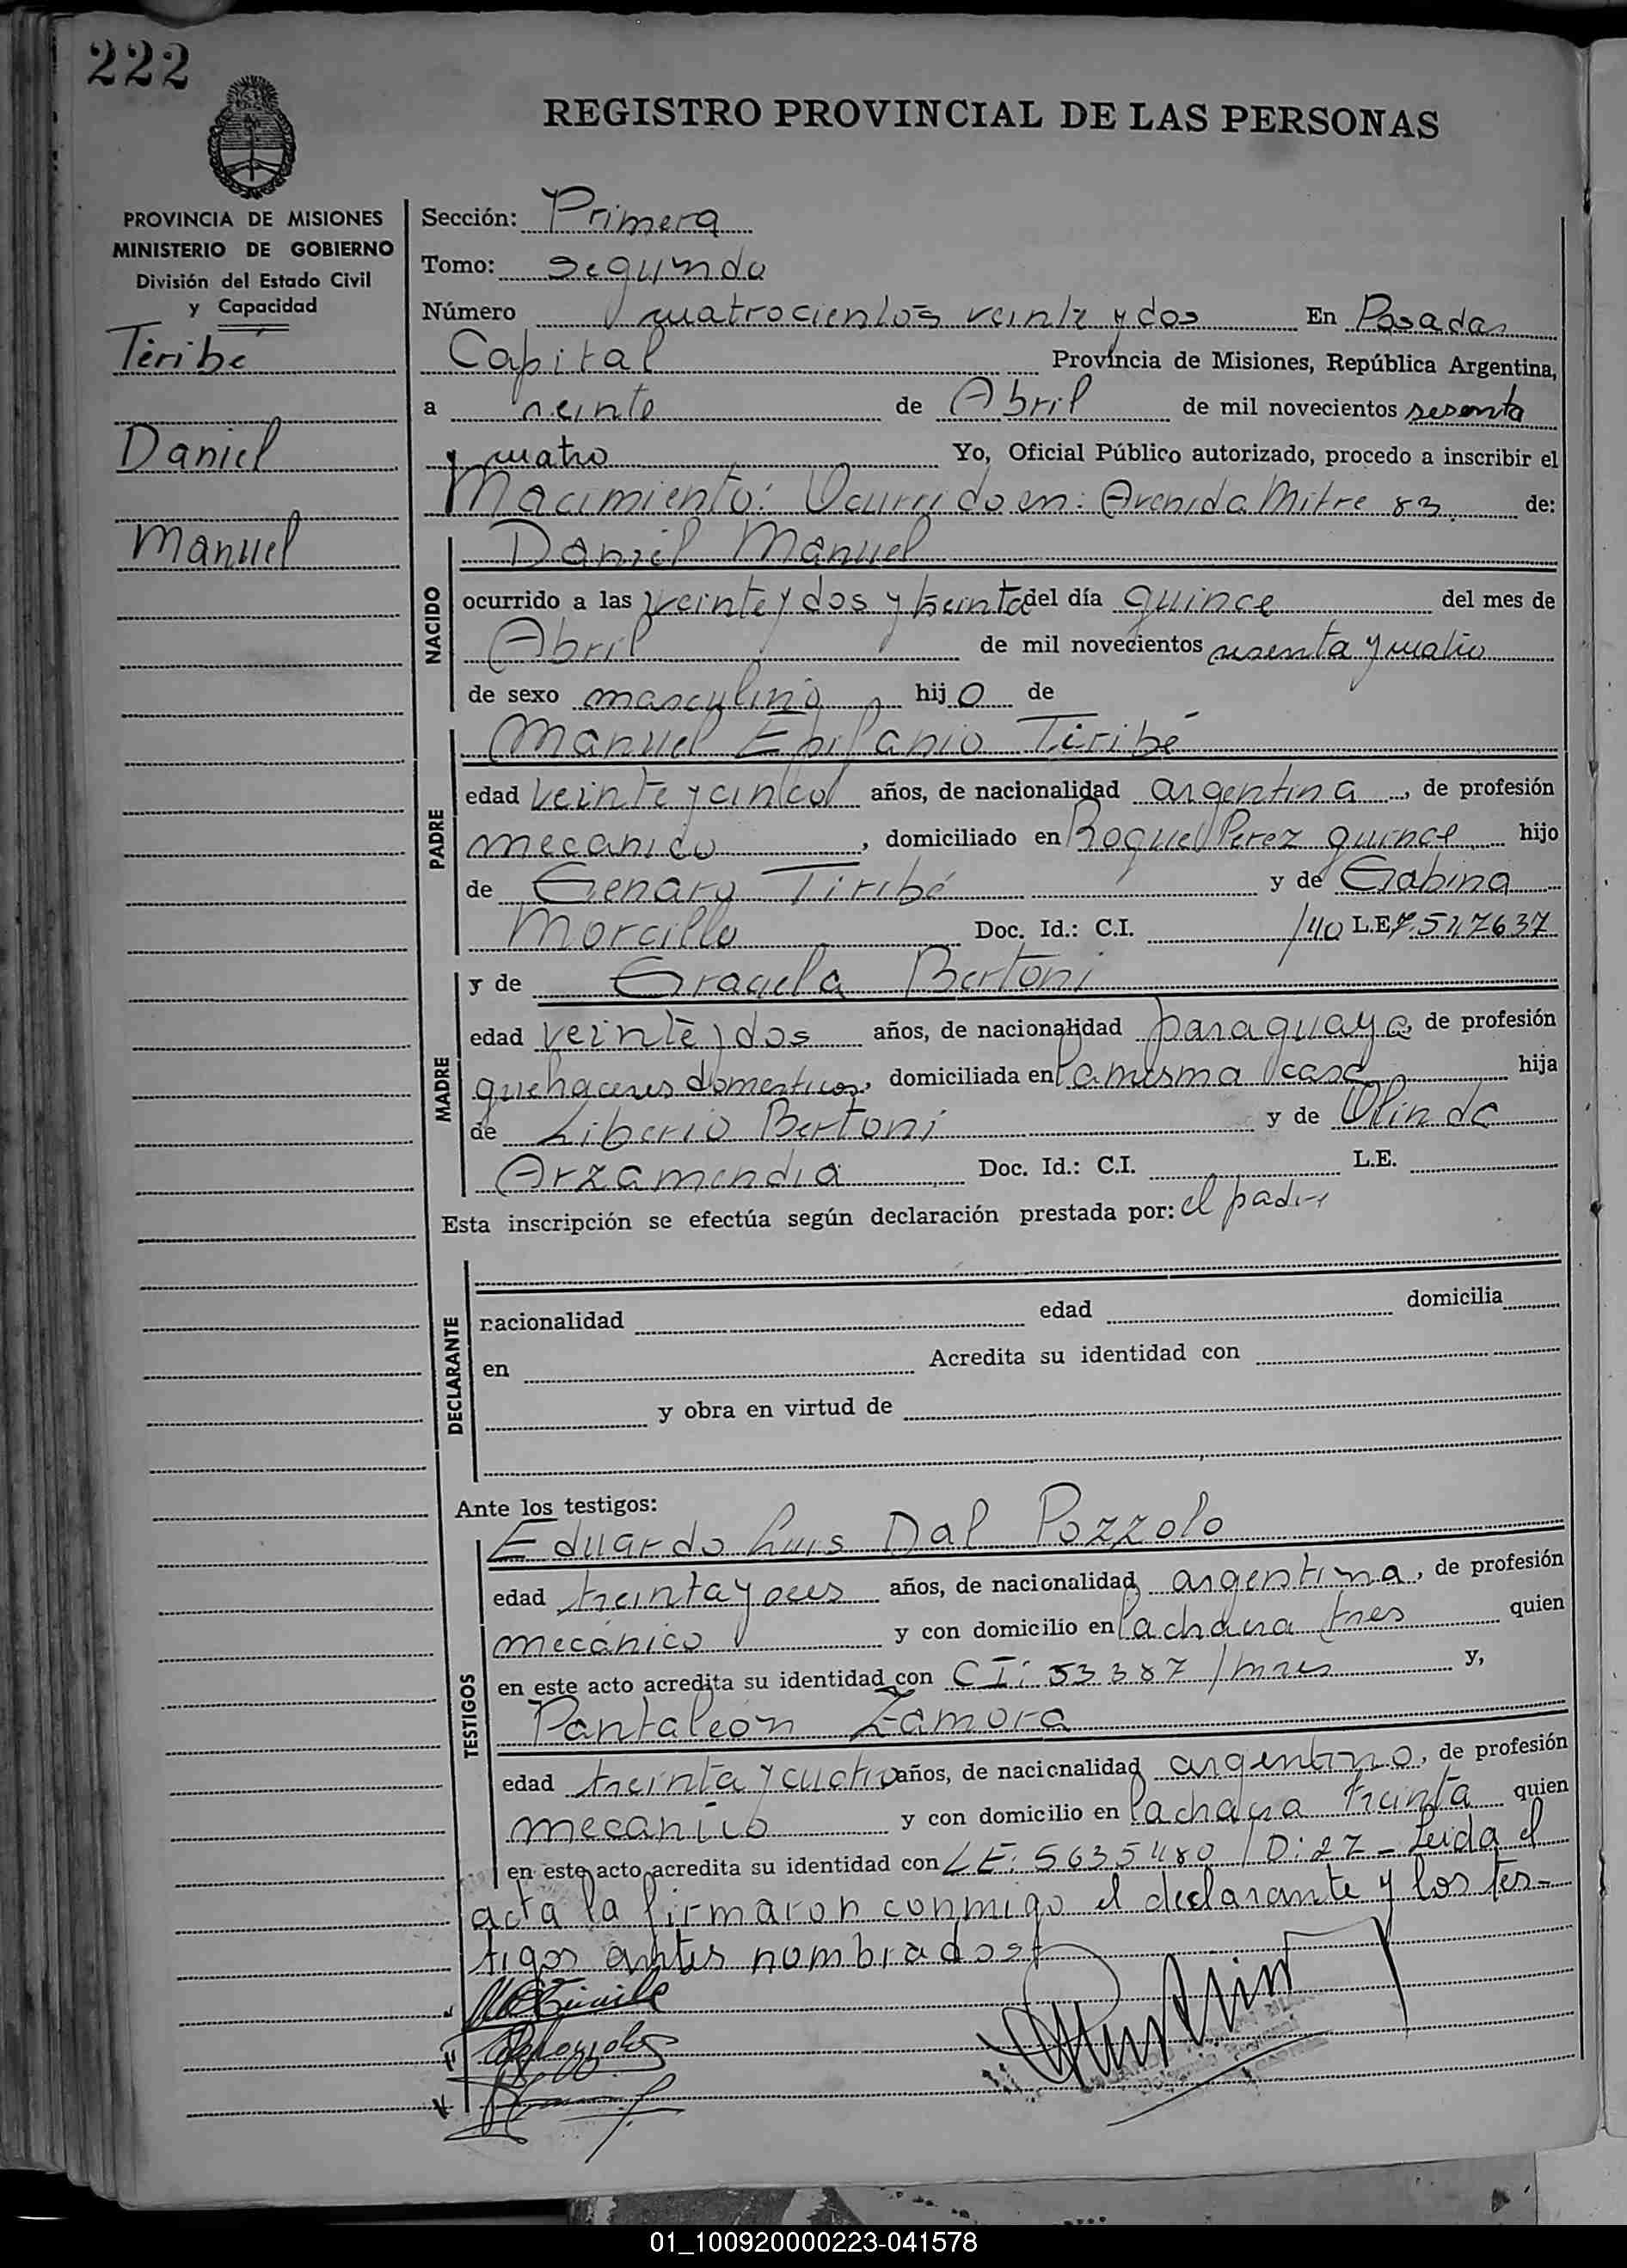 222
REGISTRO PROVINCIAL DE LAS PERSONAS
PROVINCIA DE MISIONES
MINISTERIO DE GOBIERNO
División del Estado Civil
y Capacidad
Tiribé
Daniel
Manuel
Sección: Primera
Tomo: Segundo
Número cuatrocientos veinte y dos En Posadas
Capital Provincia de Misiones, República Argentina,
a veinte de Abril de mil novecientos sesenta
y cuatro Yo, Oficial Público autorizado, procedo a inscribir el
Nacimiento: Ocurrido en: Avenida Mitre 83. de:
NACIDO
Daniel Manuel
ocurrido a las veinte y dos y treinta del día quince del mes de
Abril de mil novecientos sesenta y cuatro
de sexo masculino hijo de
PADRE
Manuel Epifanio Tiribé
edad veinte y cinco años, de nacionalidad argentina, de profesión
mecanico, domiciliado en Roque Perez quince hijo
de Genaro Tiribé y de Gabina
Morcillo Doc. Id.: C.I. L.E. 7.517637
MADRE
y de Graciela Bertoni
edad veinte y dos años, de nacionalidad paraguaya, de profesión
quehaceres domesticos, domiciliada en la misma casa hija
de Liberio Bertoni y de Olinda
Arzamendia Doc. Id.: C.I. L.E.
Esta inscripción se efectúa según declaración prestada por: el padre
DECLARANTE
nacionalidad edad domicilia
en Acredita su identidad con
y obra en virtud de
Ante los testigos:
TESTIGOS
Eduardo Luis Dal Pozzolo
edad treinta y seis años, de nacionalidad argentina, de profesión
mecánico y con domicilio en la chacra tres quien
en este acto acredita su identidad con CI: 53387/mnes y,
Pantaleón Zamora
edad treinta y cuatro años, de nacionalidad argentino, de profesión
mecanico y con domicilio en la chacra treinta quien
en este acto acredita su identidad con LE: 5635480 / D: 27 - Leida el
acta la firmaron conmigo el declarante y los tes-
tigos antes nombrados
01_100920000223-041578